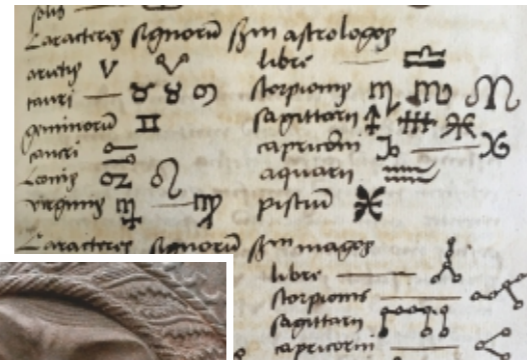 solis
Caracteres signorũ scđm astrologos
arietis
tauri
geminorũ
cancri
Leonis
virginis
libre
scorpionis
sagittarii
capricorni
aquarii
pisciũ
Caracteres signorũ scđm magos
libre
scorpionis
sagittarii
capricorni